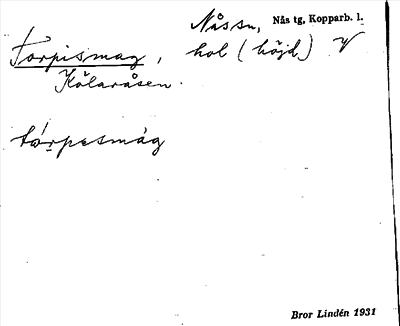 Nåssn, Nås tg, Kopparb. l.
Torpismag, hol (höjd) V
Kölaråsen.
tórpesmág
Bror Lindén 1931